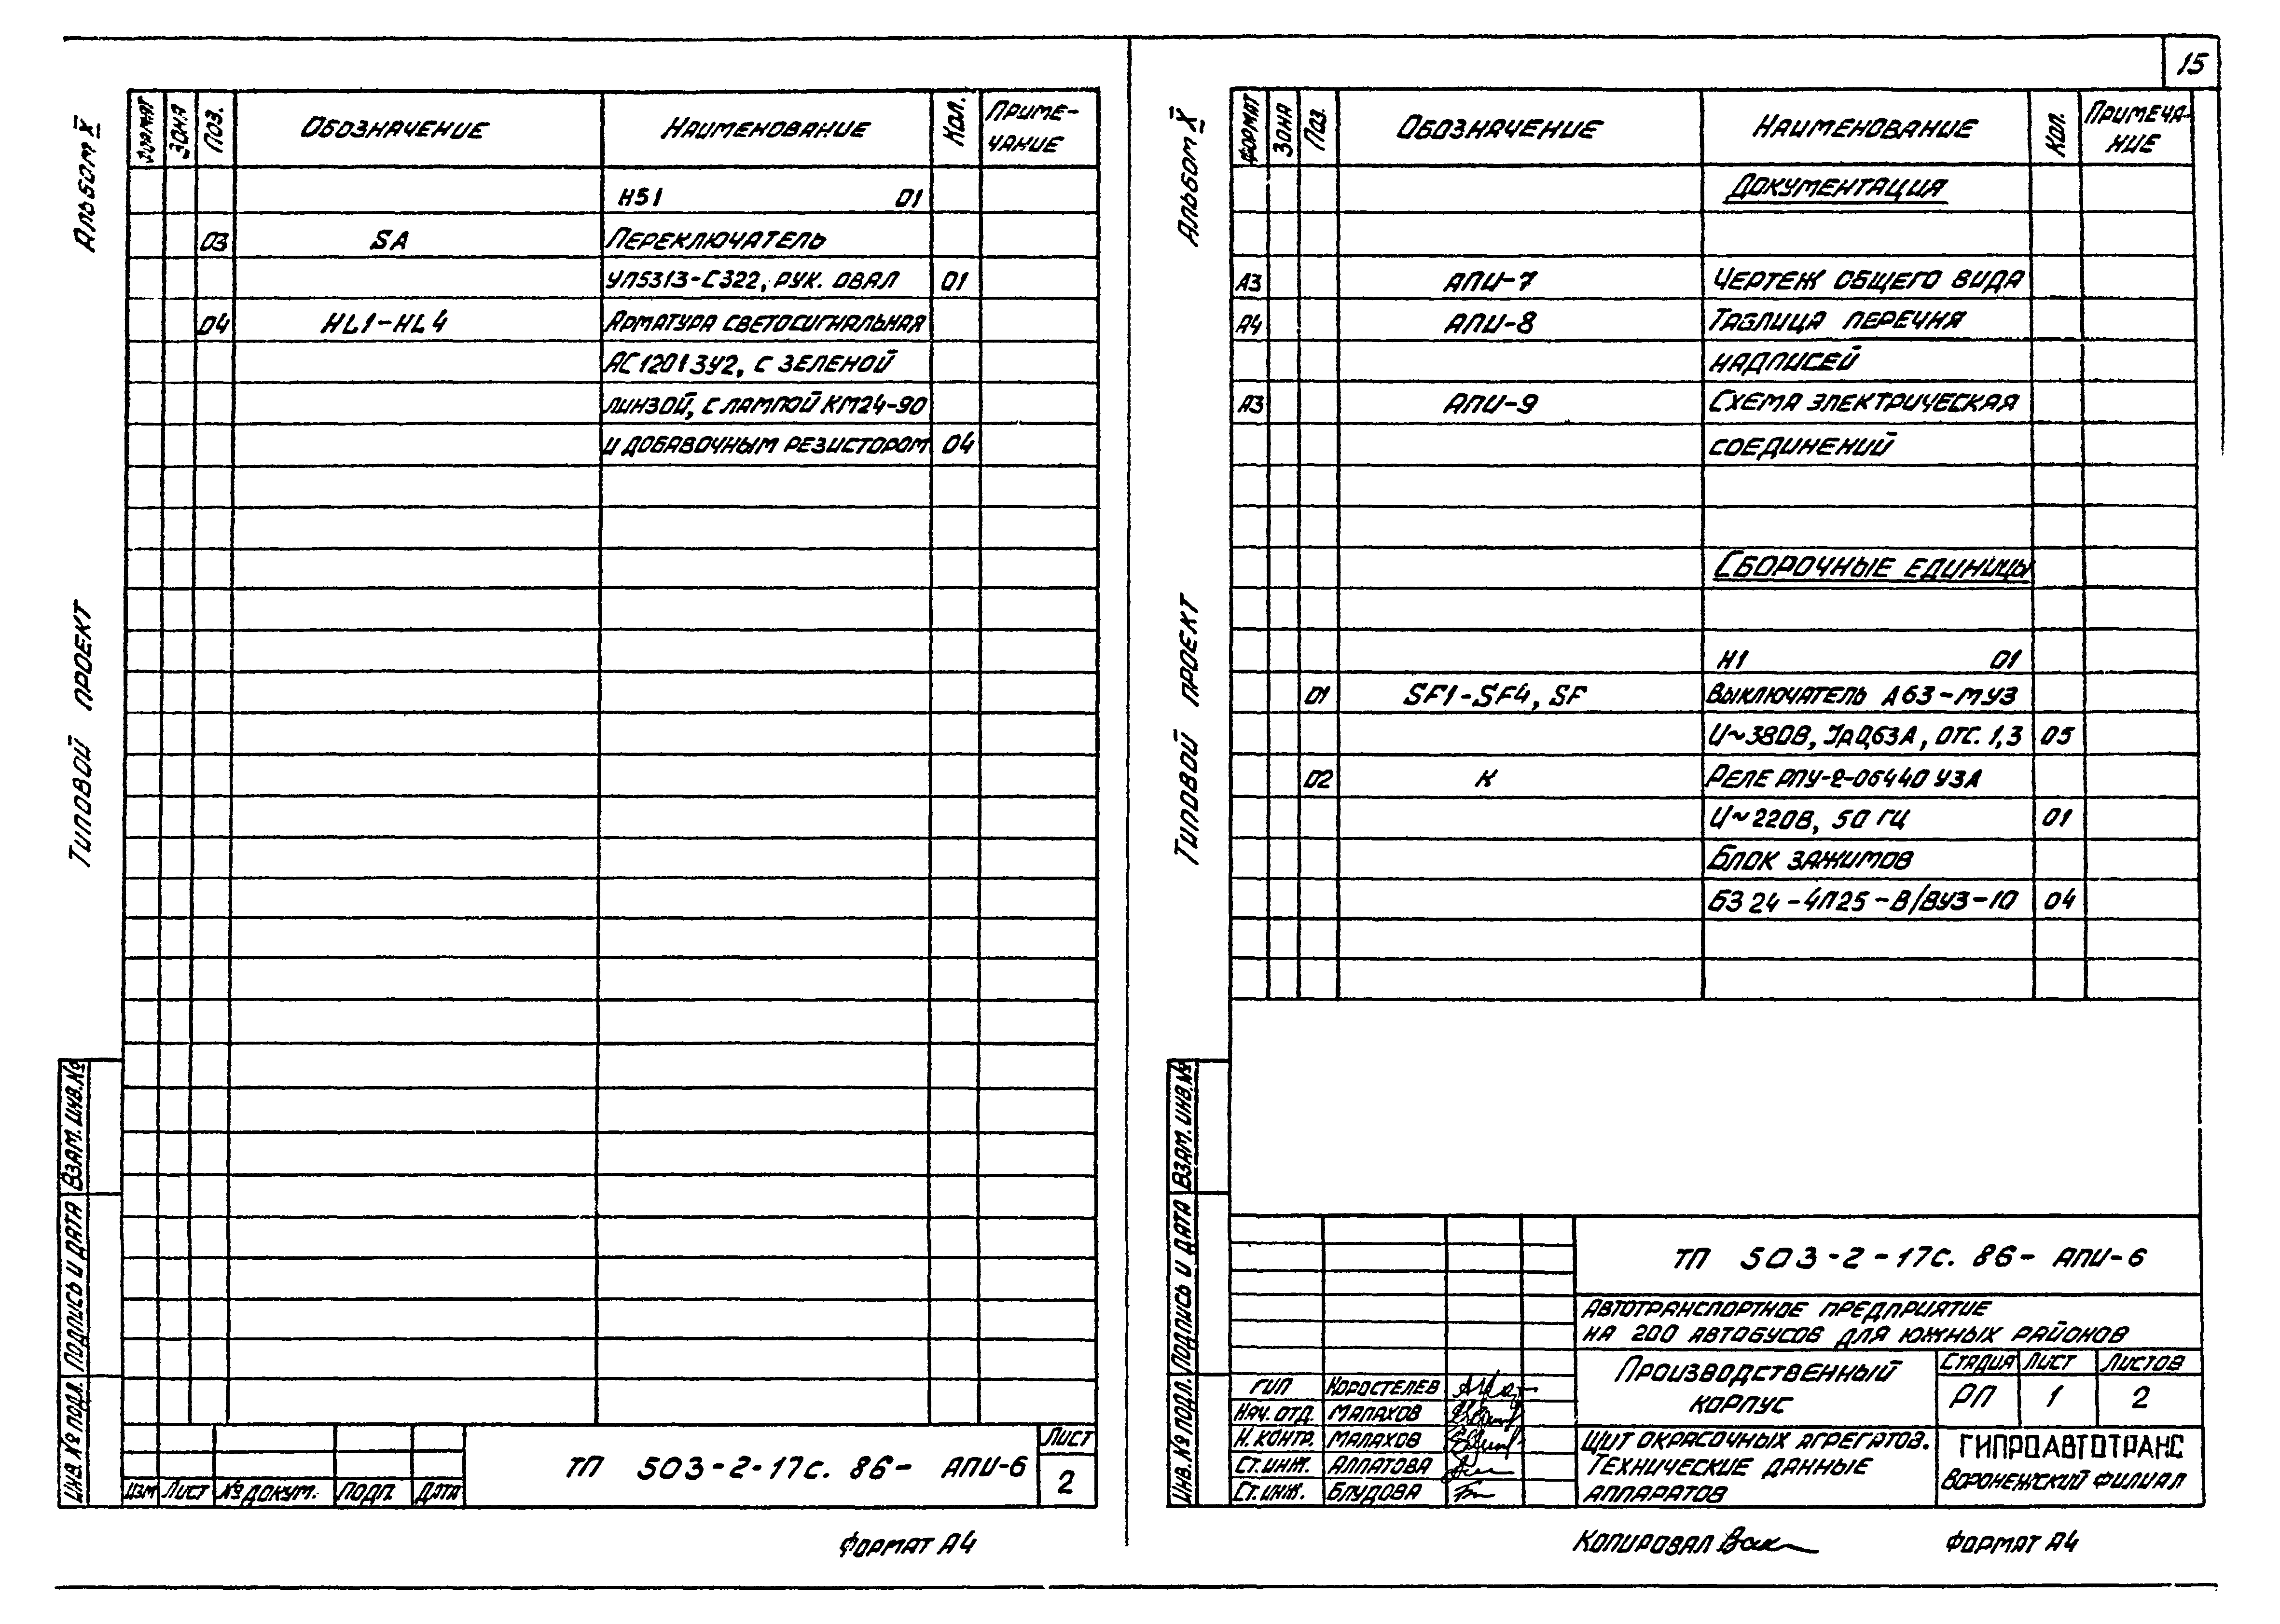 15
Альбом X
Типовой проект
Формат
Зона
Поз.
Обозначение
Наименование
Кол.
Приме-
чание
Н51 01
03 SA Переключатель
УП5313-С322, рук. овал 01
04 HL1-HL4 Арматура светосигнальная
АС12013У2, с зеленой
линзой, с лампой КМ24-90
и добавочным резистором 04
Взам. инв. №
Подпись и дата
Инв. № подл.
Изм Лист № докум. Подп. Дата
ТП 503-2-17с. 86- АПИ-6
Лист
2
Формат А4
Альбом X
Типовой проект
Формат
Зона
Поз.
Обозначение
Наименование
Кол.
Примеча-
ние
Документация
А3 АПИ-7 Чертеж общего вида
А4 АПИ-8 Таблица перечня
надписей
А3 АПИ-9 Схема электрическая
соединений
Сборочные единицы
Н1 01
01 SF1-SF4, SF Выключатель А63-МУ3
U~380В, Iр0,63А, отс. 1,3 05
02 К Реле РПУ-2-06440 У3А
U~220В, 50 Гц 01
Блок зажимов
БЗ 24-4П25-В/ВУ3-10 04
Взам. инв. №
Подпись и дата
Инв. № подл.
ТП 503-2-17с. 86- АПИ-6
Автотранспортное предприятие
на 200 автобусов для южных районов
Производственный
корпус
Стадия Лист Листов
РП 1 2
ГИП Коростелев
Нач. отд. Малахов
Н. контр. Малахов
Ст. инж. Алпатова
Ст. инж. Блудова
Щит окрасочных агрегатов.
Технические данные
аппаратов
ГИПРОАВТОТРАНС
Воронежский филиал
Копировал
Формат А4